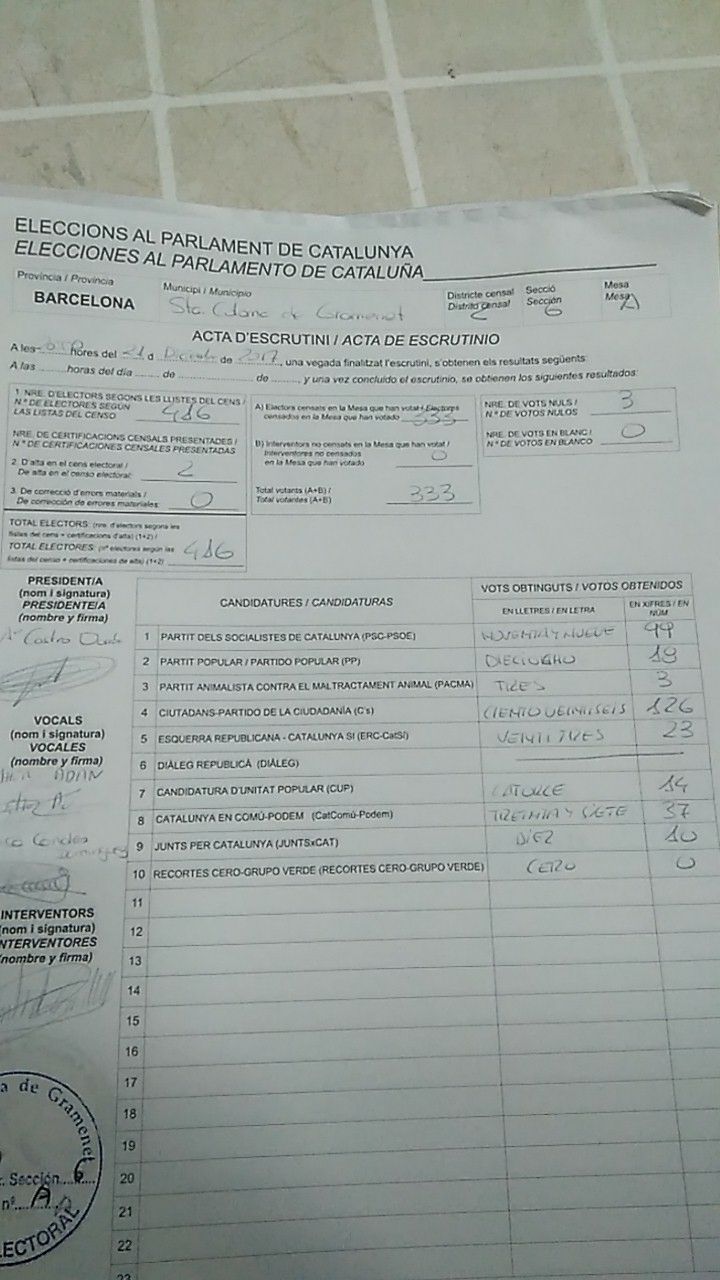 ELECCIONS AL PARLAMENT DE CATALUNYA
ELECCIONES AL PARLAMENTO DE CATALUÑA
Província / Provincia
BARCELONA
Municipi / Municipio
Sta. Coloma de Gramenet
Districte censal
Distrito censal
2
Secció
Sección
6
Mesa
Mesa
A
ACTA D'ESCRUTINI / ACTA DE ESCRUTINIO
A les hores del 21 d Diciembre de 2017, una vegada finalitzat l'escrutini, s'obtenen els resultats següents:
A las horas del día de de , y una vez concluido el escrutinio, se obtienen los siguientes resultados:
1. NRE. D'ELECTORS SEGONS LES LLISTES DEL CENS /
N.º DE ELECTORES SEGÚN
LAS LISTAS DEL CENSO 416
NRE. DE CERTIFICACIONS CENSALS PRESENTADES /
N.º DE CERTIFICACIONES CENSALES PRESENTADAS
2. D'alta en el cens electoral /
De alta en el censo electoral: 2
3. De correcció d'errors materials /
De corrección de errores materiales: 0
TOTAL ELECTORS: (nre. d'electors segons les
llistes del cens + certificacions d'alta) (1+2) /
TOTAL ELECTORES: (nº electores según las
listas del censo + certificaciones de alta) (1+2) 416
A) Electors censats en la Mesa que han votat / Electores
censados en la Mesa que han votado 333
B) Interventors no censats en la Mesa que han votat /
Interventores no censados
en la Mesa que han votado 0
Total votants (A+B) /
Total votantes (A+B) 333
NRE. DE VOTS NULS /
N.º DE VOTOS NULOS 3
NRE. DE VOTS EN BLANC /
N.º DE VOTOS EN BLANCO 0
PRESIDENT/A
(nom i signatura)
PRESIDENTE/A
(nombre y firma)
Castro
VOCALS
(nom i signatura)
VOCALES
(nombre y firma)
ADAN
INTERVENTORS
(nom i signatura)
INTERVENTORES
(nombre y firma)
CANDIDATURES / CANDIDATURAS
VOTS OBTINGUTS / VOTOS OBTENIDOS
EN LLETRES / EN LETRA
EN XIFRES / EN NÚM
1 PARTIT DELS SOCIALISTES DE CATALUNYA (PSC-PSOE) NOVENTA Y NUEVE 99
2 PARTIT POPULAR / PARTIDO POPULAR (PP) DIECIOCHO 18
3 PARTIT ANIMALISTA CONTRA EL MALTRACTAMENT ANIMAL (PACMA) TRES 3
4 CIUTADANS-PARTIDO DE LA CIUDADANÍA (C's) CIENTO VEINTISEIS 126
5 ESQUERRA REPUBLICANA - CATALUNYA SÍ (ERC-CatSí) VEINTITRES 23
6 DIÀLEG REPUBLICÀ (DIÀLEG)
7 CANDIDATURA D'UNITAT POPULAR (CUP) CATORCE 14
8 CATALUNYA EN COMÚ-PODEM (CatComú-Podem) TREINTA Y SIETE 37
9 JUNTS PER CATALUNYA (JUNTSxCAT) DIEZ 10
10 RECORTES CERO-GRUPO VERDE (RECORTES CERO-GRUPO VERDE) CERO 0
11
12
13
14
15
16
17
18
19
20
21
22
23
a de Gramenet
Sección 6
nº A
ELECTORAL